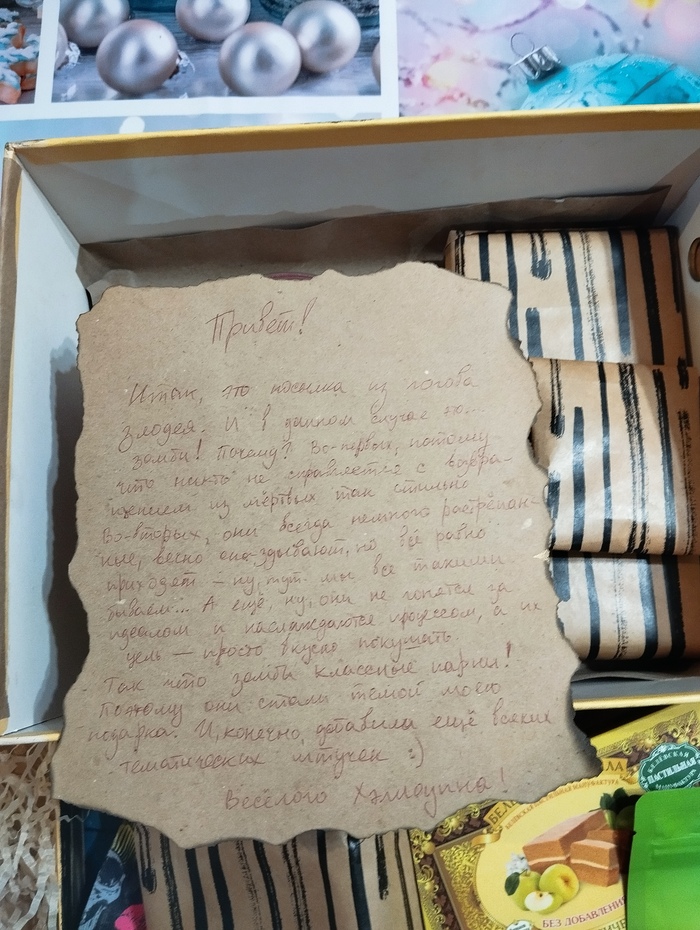 Привет!
Итак, это посылка из логова
злодея. И в данном случае это...
зомби! Почему? Во-первых, потому
что никто не справляется с возвра-
щением из мёртвых так стильно
Во-вторых, они всегда немного растрёпан-
ные, вечно опаздывают, но всё равно
приходят – ну, тут мы все такими
бываем... А ещё, ну, они не гонятся за
идеалом и наслаждаются процессом, а их
цель – просто вкусно покушать.
Так что зомби классные парни!
Поэтому они стали темой моего
подарка. И, конечно, добавила ещё всяких
тематических штучек :)
Весёлого Хэллоуина!
БЕЛЁВСКАЯ
ПАСТИЛЬНАЯ
МАНУФАКТУРА
БЕЛ
ЛА
БЕЛЁВСКАЯ ПАСТИЛЬНАЯ МАНУФАКТУРА
БЕЗ ДОБАВЛЕНИ